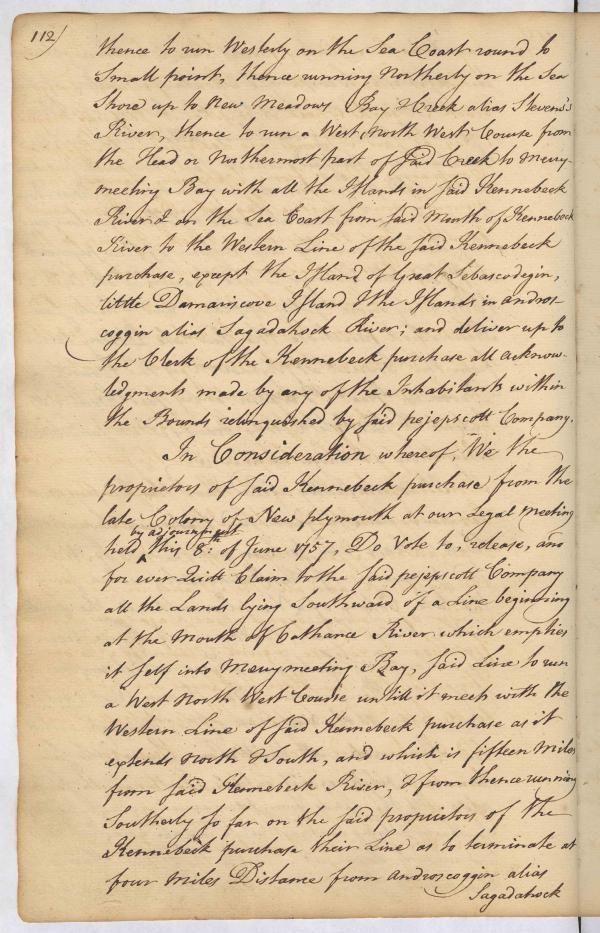 112)
thence to run Westerly on the Sea Coast round to
Small point, thence running Northerly on the Sea
Shore up to New Meadows Bay & Creek alias Stevens's
River, thence to run a West North West Course from
the Head or Northermost part of said Creek to Merry-
meeting Bay with all the Islands in said Kennebeck
River & on the Sea Coast from said Mouth of Kennebeck
River to the Western Line of the said Kennebeck
purchase, except the Island of Great Sebascodegin,
little Damariscove Island & the Islands in Andros-
coggin alias Sagadahock River; and deliver up to
the Clerk of the Kennebeck purchase all Acknow-
ledgments made by any of the Inhabitants within
the Bounds relinquished by said pejepscott Company.
In Consideration whereof, We the
proprietors of said Kennebeck purchase from the
late Colony of New plymouth at our Legal Meeting
by adjournment
held this 8: of June 1757, Do Vote to, release, and
for ever Quitt Claim to the said pejepscott Company
all the Lands lying Southward of a Line beginning
at the Mouth of Cathance River which empties
it self into Merrymeeting Bay, said Line to run
a West North West Course untill it meets with the
Western Line of said Kennebeck purchase as it
extends North & South, and which is fifteen Miles
from said Kennebeck River, & from thence running
Southerly so far on the said proprietors of the
Kennebeck purchase their Line as to terminate at
four Miles Distance from Androscoggin alias
Sagadahock